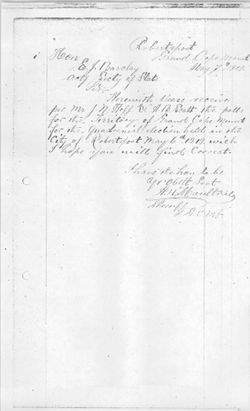 Robertsport
Grand Cape Mount
May 7th 190
Hon
E. J. Barclay
Actg Secty of State
Sir
Herewith please receive
per Mr J. W. & A. B. the polls
for the Territory of Grand Cape Mount
for the Quadrenial election held in the
City of Robertsport May 6th 1919, wich
I hope you will find Correct.
I have the hon to be
yr Obdt Svnt
Sheriff